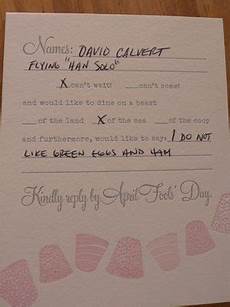 Names: DAVID CALVERT
FLYING "HAN SOLO"
X can't wait! __can't come!
and would like to dine on a beast
__of the land X of the sea __of the coop
and furthermore, would like to say: I DO NOT
LIKE GREEN EGGS AND HAM
Kindly reply by April Fools' Day.